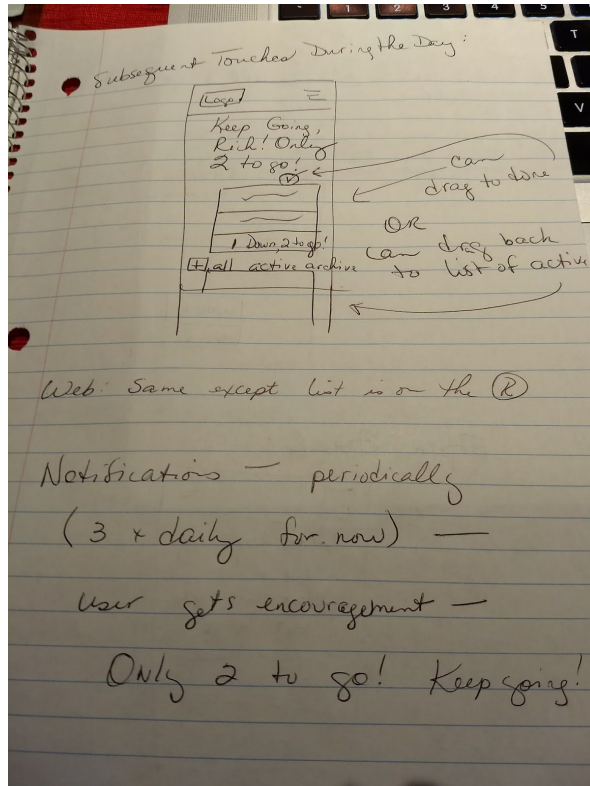 Subsequent Touches During the Day:
Logo
Keep Going,
Rich! Only
2 to go!
1 Down, 2 to go!
+ all active archive
can
drag to done
OR
can drag back
to list of active
Web: Same except list is on the R
Notifications — periodically
(3 x daily for now) —
user gets encouragement —
Only 2 to go! Keep going!
1
2
3
4
5
T
V